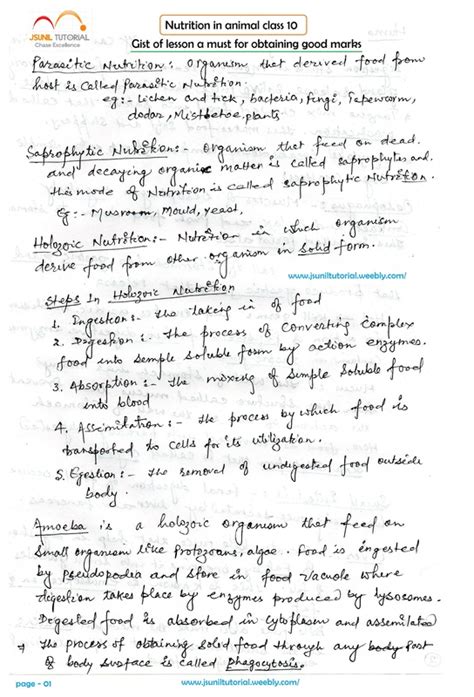 JSUNIL TUTORIAL
Chase Excellence
Nutrition in animal class 10
Gist of lesson a must for obtaining good marks
Parasitic Nutrition: Organism that derived food from
host is called Parasitic Nutrition.
eg:- Lichen and tick, bacteria, fungi, Tapeworm,
dodar, Mistbetoe, plants
Saprophytic Nutrition:- Organism that feed on dead
and decaying organic matter is called saprophytes and
this mode of Nutrition is called saprophytic Nutrition.
Eg:- Musroom, Mould, yeast,
Holozoic Nutrition:- Nutrition in which organism
derive food from other organism in solid form.
www.jsuniltutorial.weebly.com/
Steps In Holozoic Nutrition
1. Ingestion:- The taking in of food
2. Digestion:- The process of converting complex
food into semple soluble form by action enzymes.
3. Absorption:- The moving of simple soluble food
into blood
4. Assimilation:- The process by which food is
transported to cells for its utilization.
5. Egestion:- The removal of undigested food outside
body.
Amoeba is a holozoic organism that feed on
small organism like Protozoans, algae. Food is engested
by Pseudopodia and store in food vacuole where
digestion takes place by enzymes produced by lysosomes.
Degested food is absorbed in cytoplasm and assemilated
The process of obtaining solid food through any body Part
of body surface is called Phagocytosis.
page - 01
www.jsuniltutorial.weebly.com/